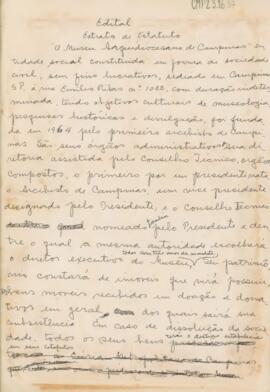 CMP2.3.16.37
Edital
Extrato de Estatuto
"O Museu Arquidiocesano de Campinas" en
tidade social constituida em forma de sociedade
civil, sem fins lucrativos, sediado em Campinas
SP, á rua Emilio Ribas nº 1082, com duração indeter
minada, tendo objetivos culturais de museologia
pesquisas históricas e divulgação, foi funda
da em 1964 pelo primeiro arcebispo de Campi
nas. São seus órgãos administrativos: Sua di
retoria assistida pelo Conselho Técnico, orgãos
compostos, o primeiro por um presidente nato
o Arcebispo de Campinas, um vice presidente
designado pelo Presidente, e o Conselho Técnico
nomeado pelo Presidente e den
tre o qual a mesma autoridade escolherá
o diretor executivo do Museu, seu patrimô
nio constará de imoveis que virá possuir
bens moveis recebidos em doação e dona
tivos em geral dos quais sairá sua
subsistência. Em caso de dissolução da so
ciedade, todos os seus bens
a Curia Metropolitana de Campinas